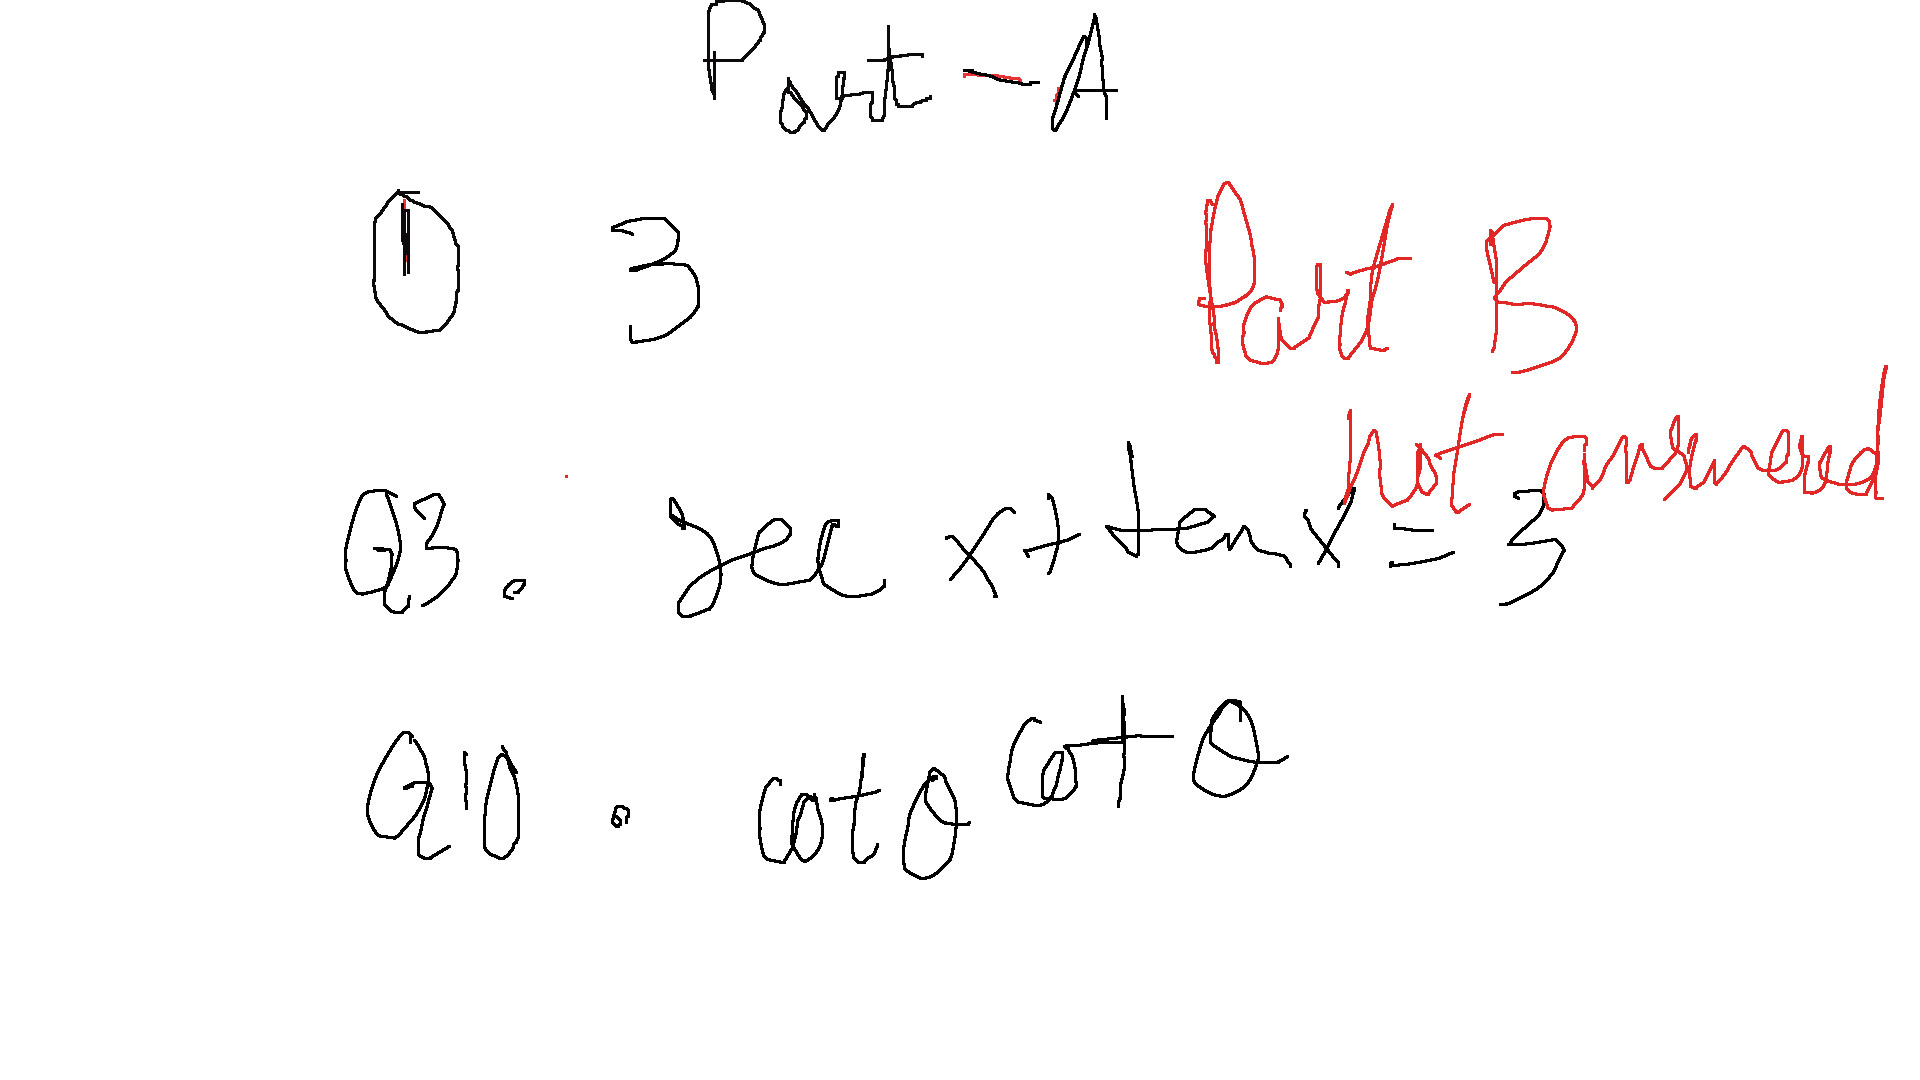 Part - A
① 3
Part B
not answered
Q3. sec x + tan x = 3
Q10. cot θ cot θ